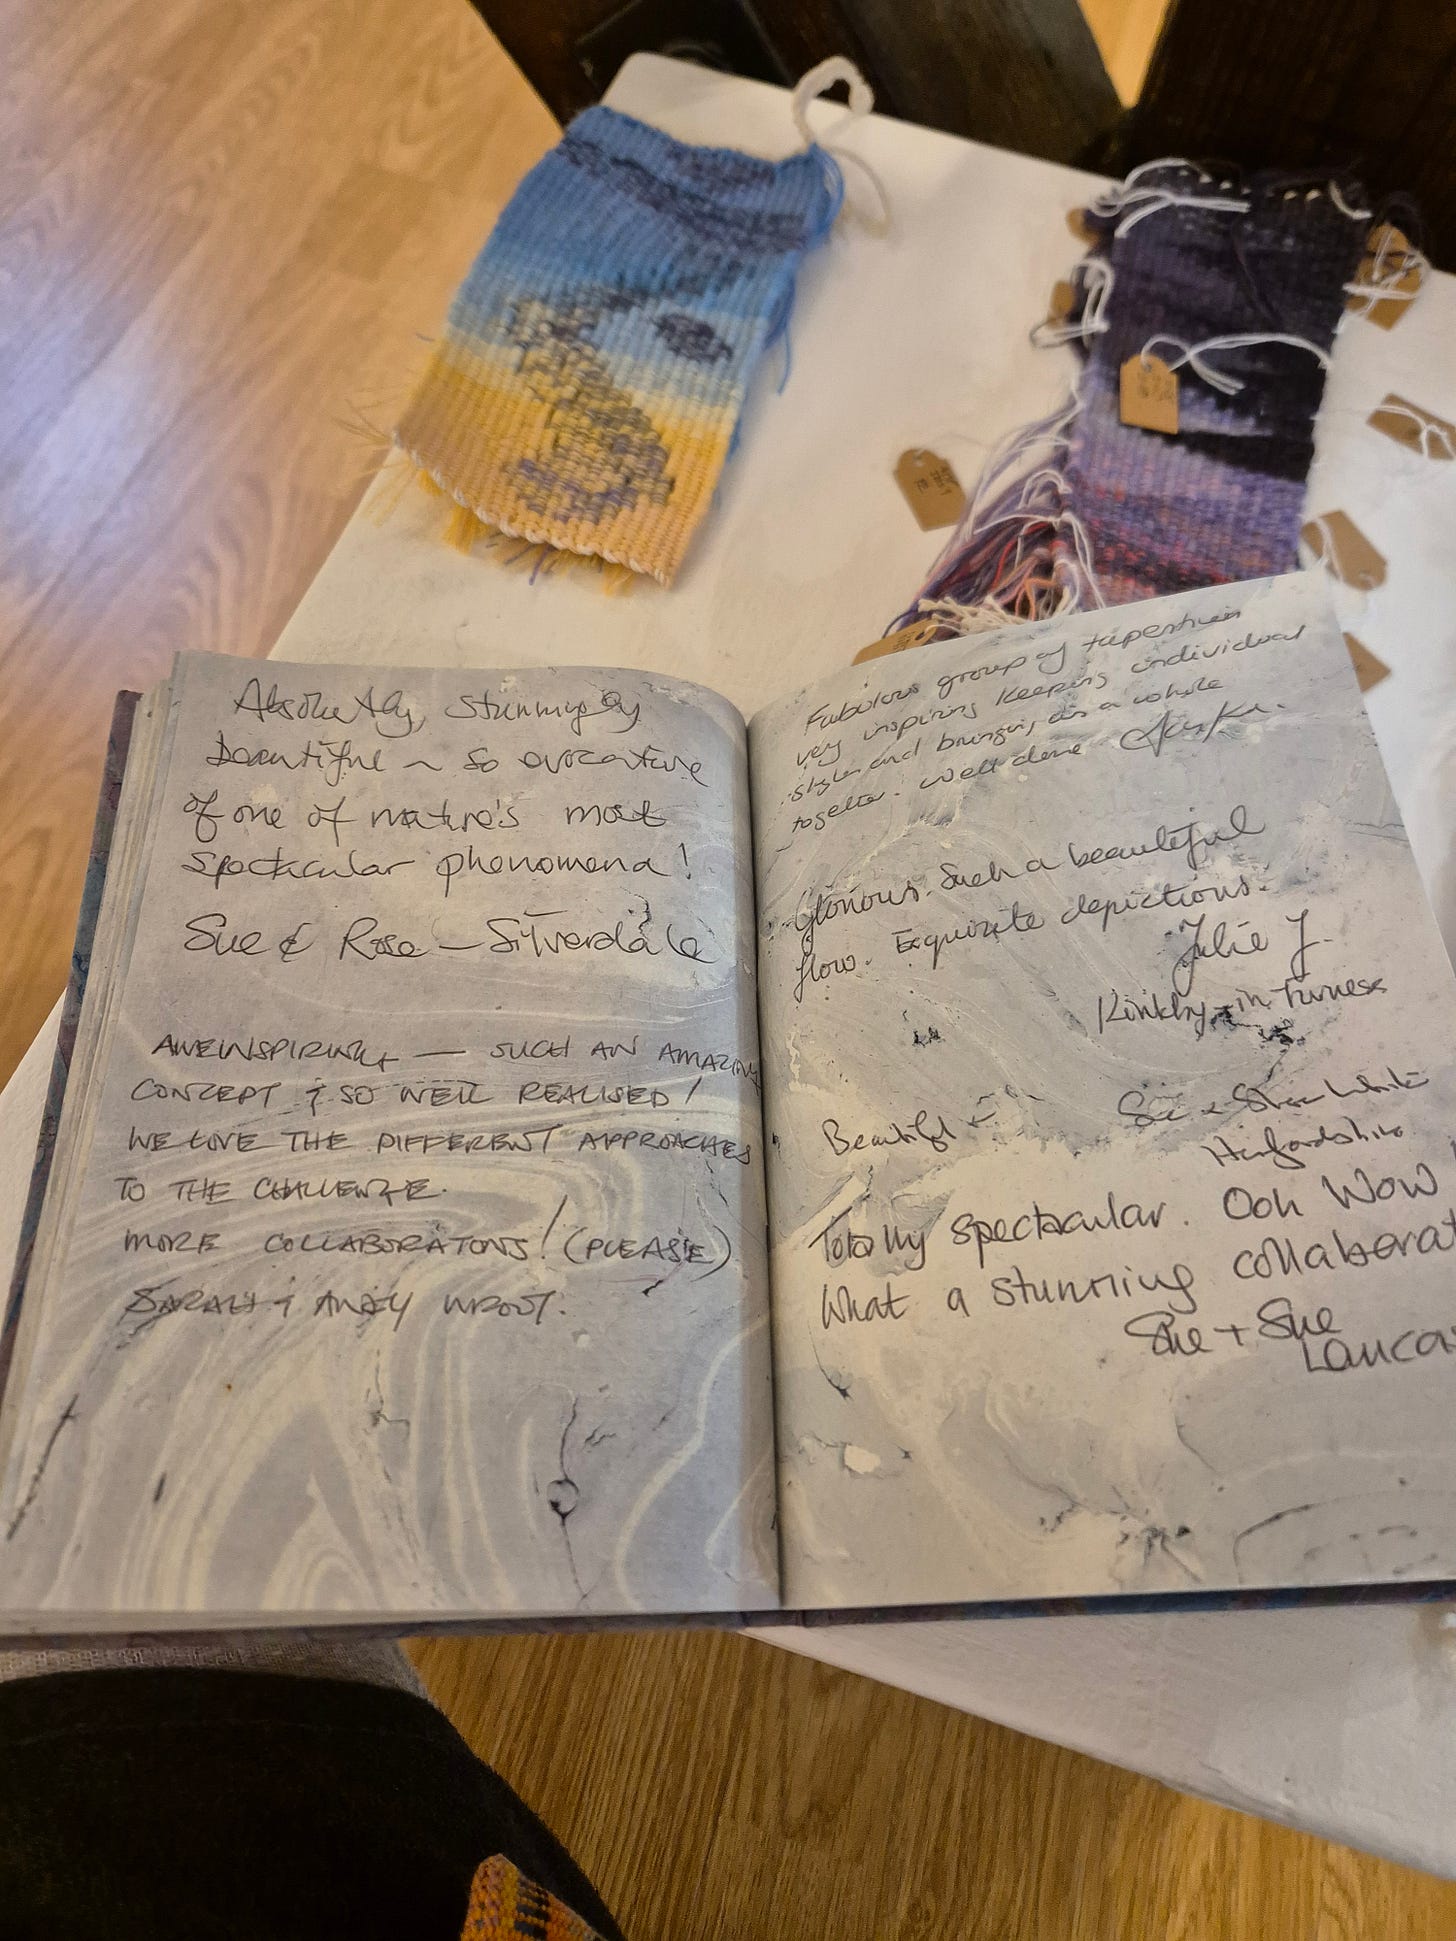 Absolutely, stunningly
beautiful ~ so evocative
of one of nature's most
spectacular phenomena!
Sue & Rose – Silverdale
AWEINSPIRING — SUCH AN AMAZING
CONCEPT & SO WELL REALISED!
WE LOVE THE DIFFERENT APPROACHES
TO THE CHALLENGE.
MORE COLLABORATONS! (PLEASE)
SARAH & ANDY
Fabulous group of tapestries
very inspiring keeping individual
styles and bringing as a whole
together. Well done
Glorious. Such a beautiful
flow. Exquisite depictions.
Julie J.
Kirkby-in-Furness
Beautiful
Sue & White
Totally spectacular. Ooh Wow!
What a stunning collaborat
Sue + Sue
Lancas